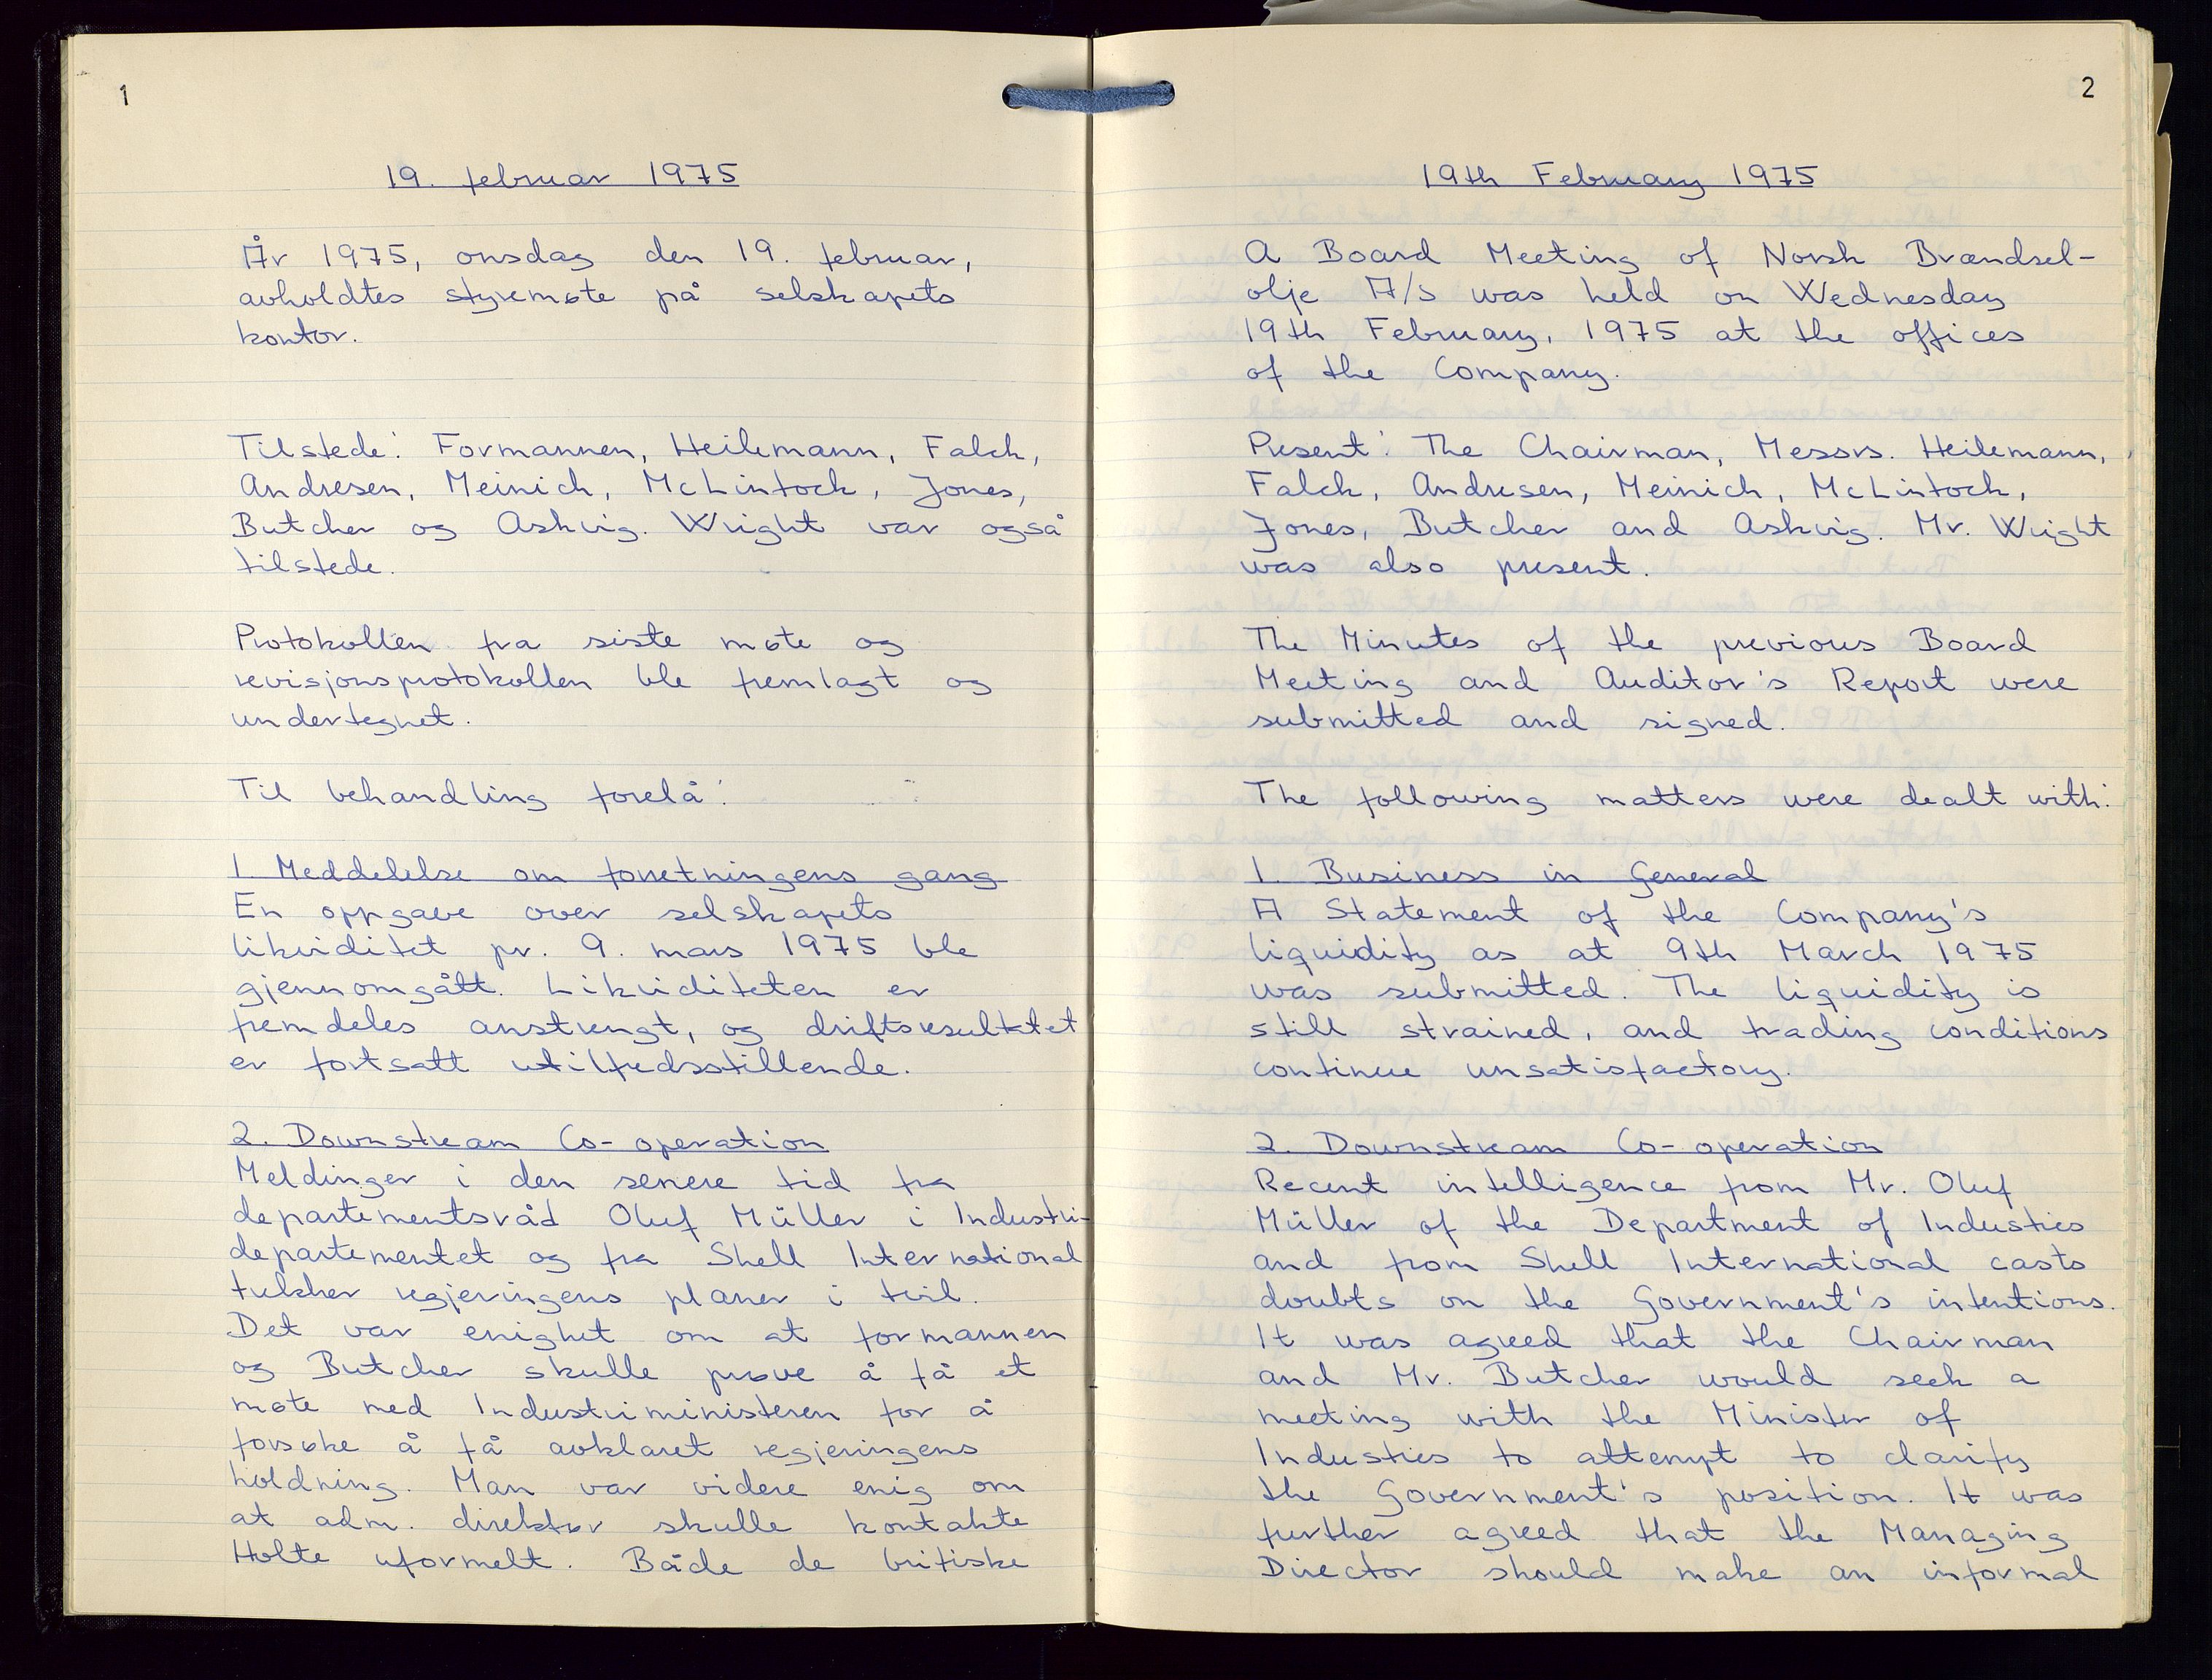 1
19. februar 1975
År 1975, onsdag den 19. februar,
avholdtes styremøte på selskapets
kontor.
Tilstede: Formannen, Heilemann, Falck,
Andresen, Meinich, McLintock, Jones,
Butcher og Askvig. Wright var også
tilstede.
Protokollen fra siste møte og
revisjonsprotokollen ble fremlagt og
undertegnet.
Til behandling forelå:
1. Meddelelse om forretningens gang
En oppgave over selskapets
likviditet pr. 9. mars 1975 ble
gjennomgått. Likviditeten er
fremdeles anstrengt, og driftsresultatet
er fortsatt utilfredsstillende.
2. Downstream Co-operation
Meldinger i den senere tid fra
departementsråd Oluf Müller i Industri-
departementet og fra Shell International
trekker regjeringens planer i tvil.
Det var enighet om at formannen
og Butcher skulle prøve å få et
møte med Industriministeren for å
forsøke å få avklaret regjeringens
holdning. Man var videre enig om
at adm. direktør skulle kontakte
Holte uformelt. Både de britiske
2
19th February 1975
A Board Meeting of Norsk Brændsel-
olje A/S was held on Wednesday
19th February, 1975 at the offices
of the Company.
Present: The Chairman, Messrs. Heilemann,
Falck, Andresen, Meinich, McLintock,
Jones, Butcher and Askvig. Mr. Wright
was also present.
The Minutes of the previous Board
Meeting and Auditor's Report were
submitted and signed.
The following matters were dealt with:
1. Business in General
A Statement of the Company's
liquidity as at 9th March 1975
was submitted. The liquidity is
still strained, and trading conditions
continue unsatisfactory.
2. Downstream Co-operation
Recent intelligence from Mr. Oluf
Müller of the Department of Industries
and from Shell International casts
doubts on the Government's intentions.
It was agreed that the Chairman
and Mr. Butcher would seek a
meeting with the Minister of
Industries to attempt to clarify
the Government's position. It was
further agreed that the Managing
Director should make an informal